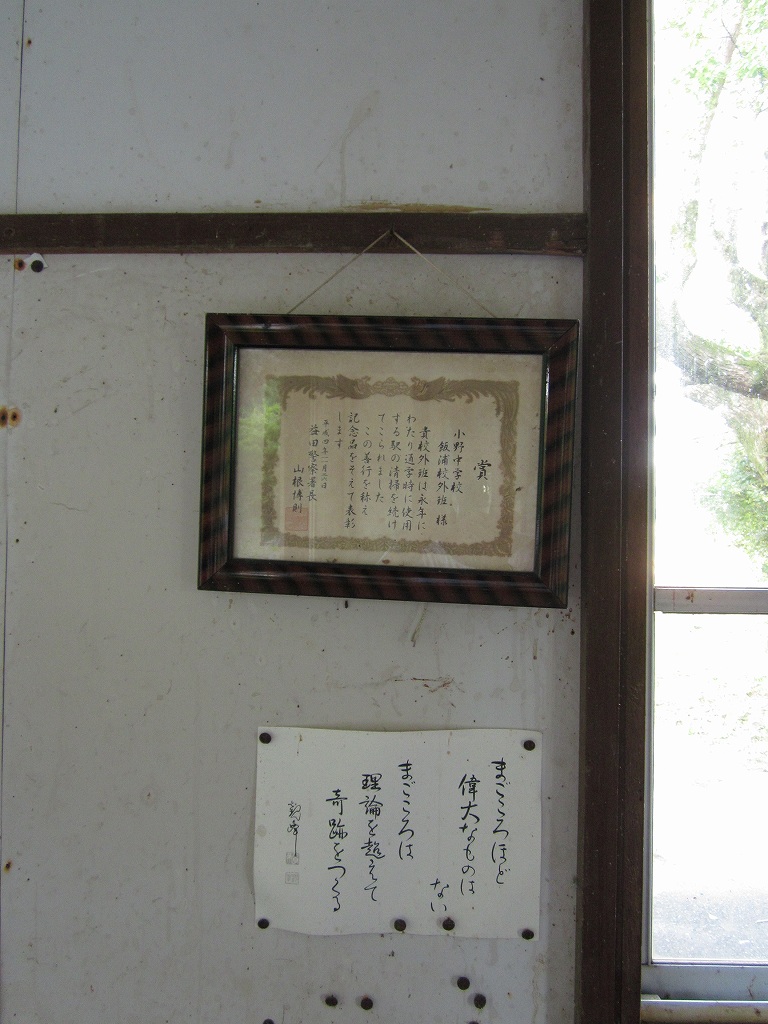 賞
小野中学校
飯浦校外班 様
貴校外班は永年に
わたり通学時に使用
する駅の清掃を続け
てこられました
この善行を称え
記念品をそえて表彰
します
平成四年二月六日
益田警察署長
山根博則
まごころほど
偉大なものは
ない
まごころは
理論を超えて
奇跡をつくる